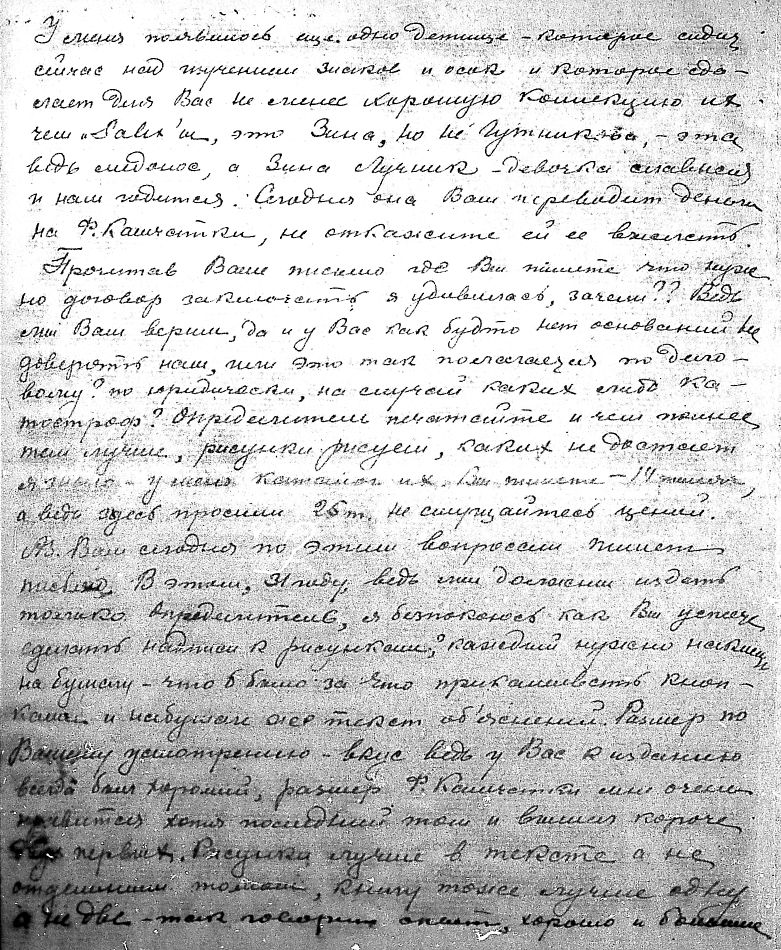 У меня появилось еще одно детище – которое сидит
сейчас над изучением злаков и осок и которое сде–
лает для Вас не менее хорошую коллекцию их
чем „Salix'ы, это Зина, но не Гутникова, – эта
ведь медонос, а Зина Лучник – девочка славная
и нам годится. Сегодня она Вам переводит деньги
на Ф. Камчатки, не откажите ей ее выслать.
Прочитав Ваше письмо где Вы пишете что нуж
но договор заключать, я удивилась, зачем?? Ведь
мы Вам верим, да и у Вас как будто нет оснований не
доверять нам, или это так полагается по дело–
вому? по юридически, на случай каких либо ка–
тостроф? Определители печатайте и чем полнее
тем лучше, рисунки рисуем, каких не достает
я знаю – у меня каталог их. Вы пишете – 14
а ведь здесь просили 25 т. не смущайтесь ценой.
Вам сегодня по этим вопросам пишет
письмо. В этом, 31 году, ведь мы должны издать
только определитель, я безпокоюсь как Вы успеете
сделать надписи к рисункам? каждый нужно наклеить
на бумагу – что б было за что прикалывать кноп–
ками и на бумаге же текст об'яснений. Размер по
Вашему усмотрению – вкус ведь у Вас к изданию
всегда был хороший, размер Ф. Камчатки мне очень
нравится хотя последний том и вышел короче
двух первых. Рисунки лучше в тексте а не
отдельным томом, книгу тоже лучше одну
а не две – так говорит опыт, хорошо и большие